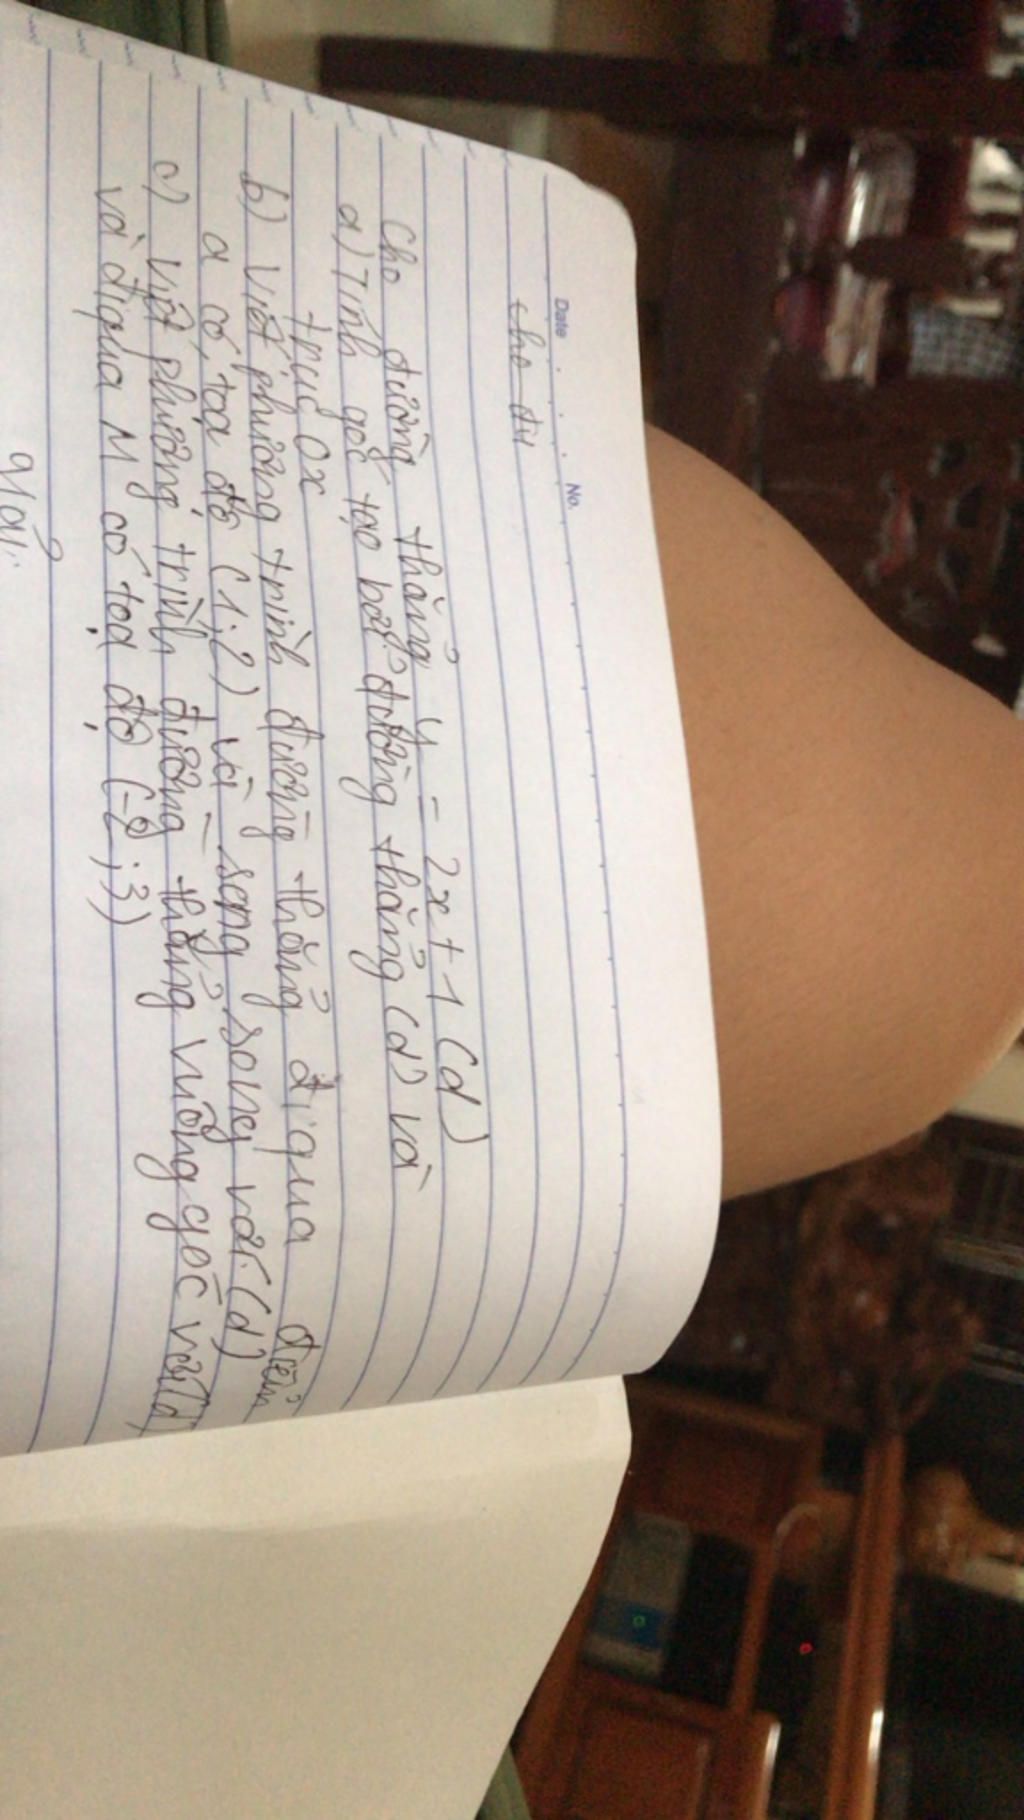 Date No.
cho đu
Cho đường thẳng y = 2x + 1 (d)
a) Tính góc tạo bởi đường thẳng (d) và
trục Ox
b) Viết phương trình đường thẳng đi qua điểm
a có toạ độ (1;2) và song song với (d)
c) Viết phương trình đường thẳng vuông góc với (d)
và đi qua M có toạ độ (-2;3)